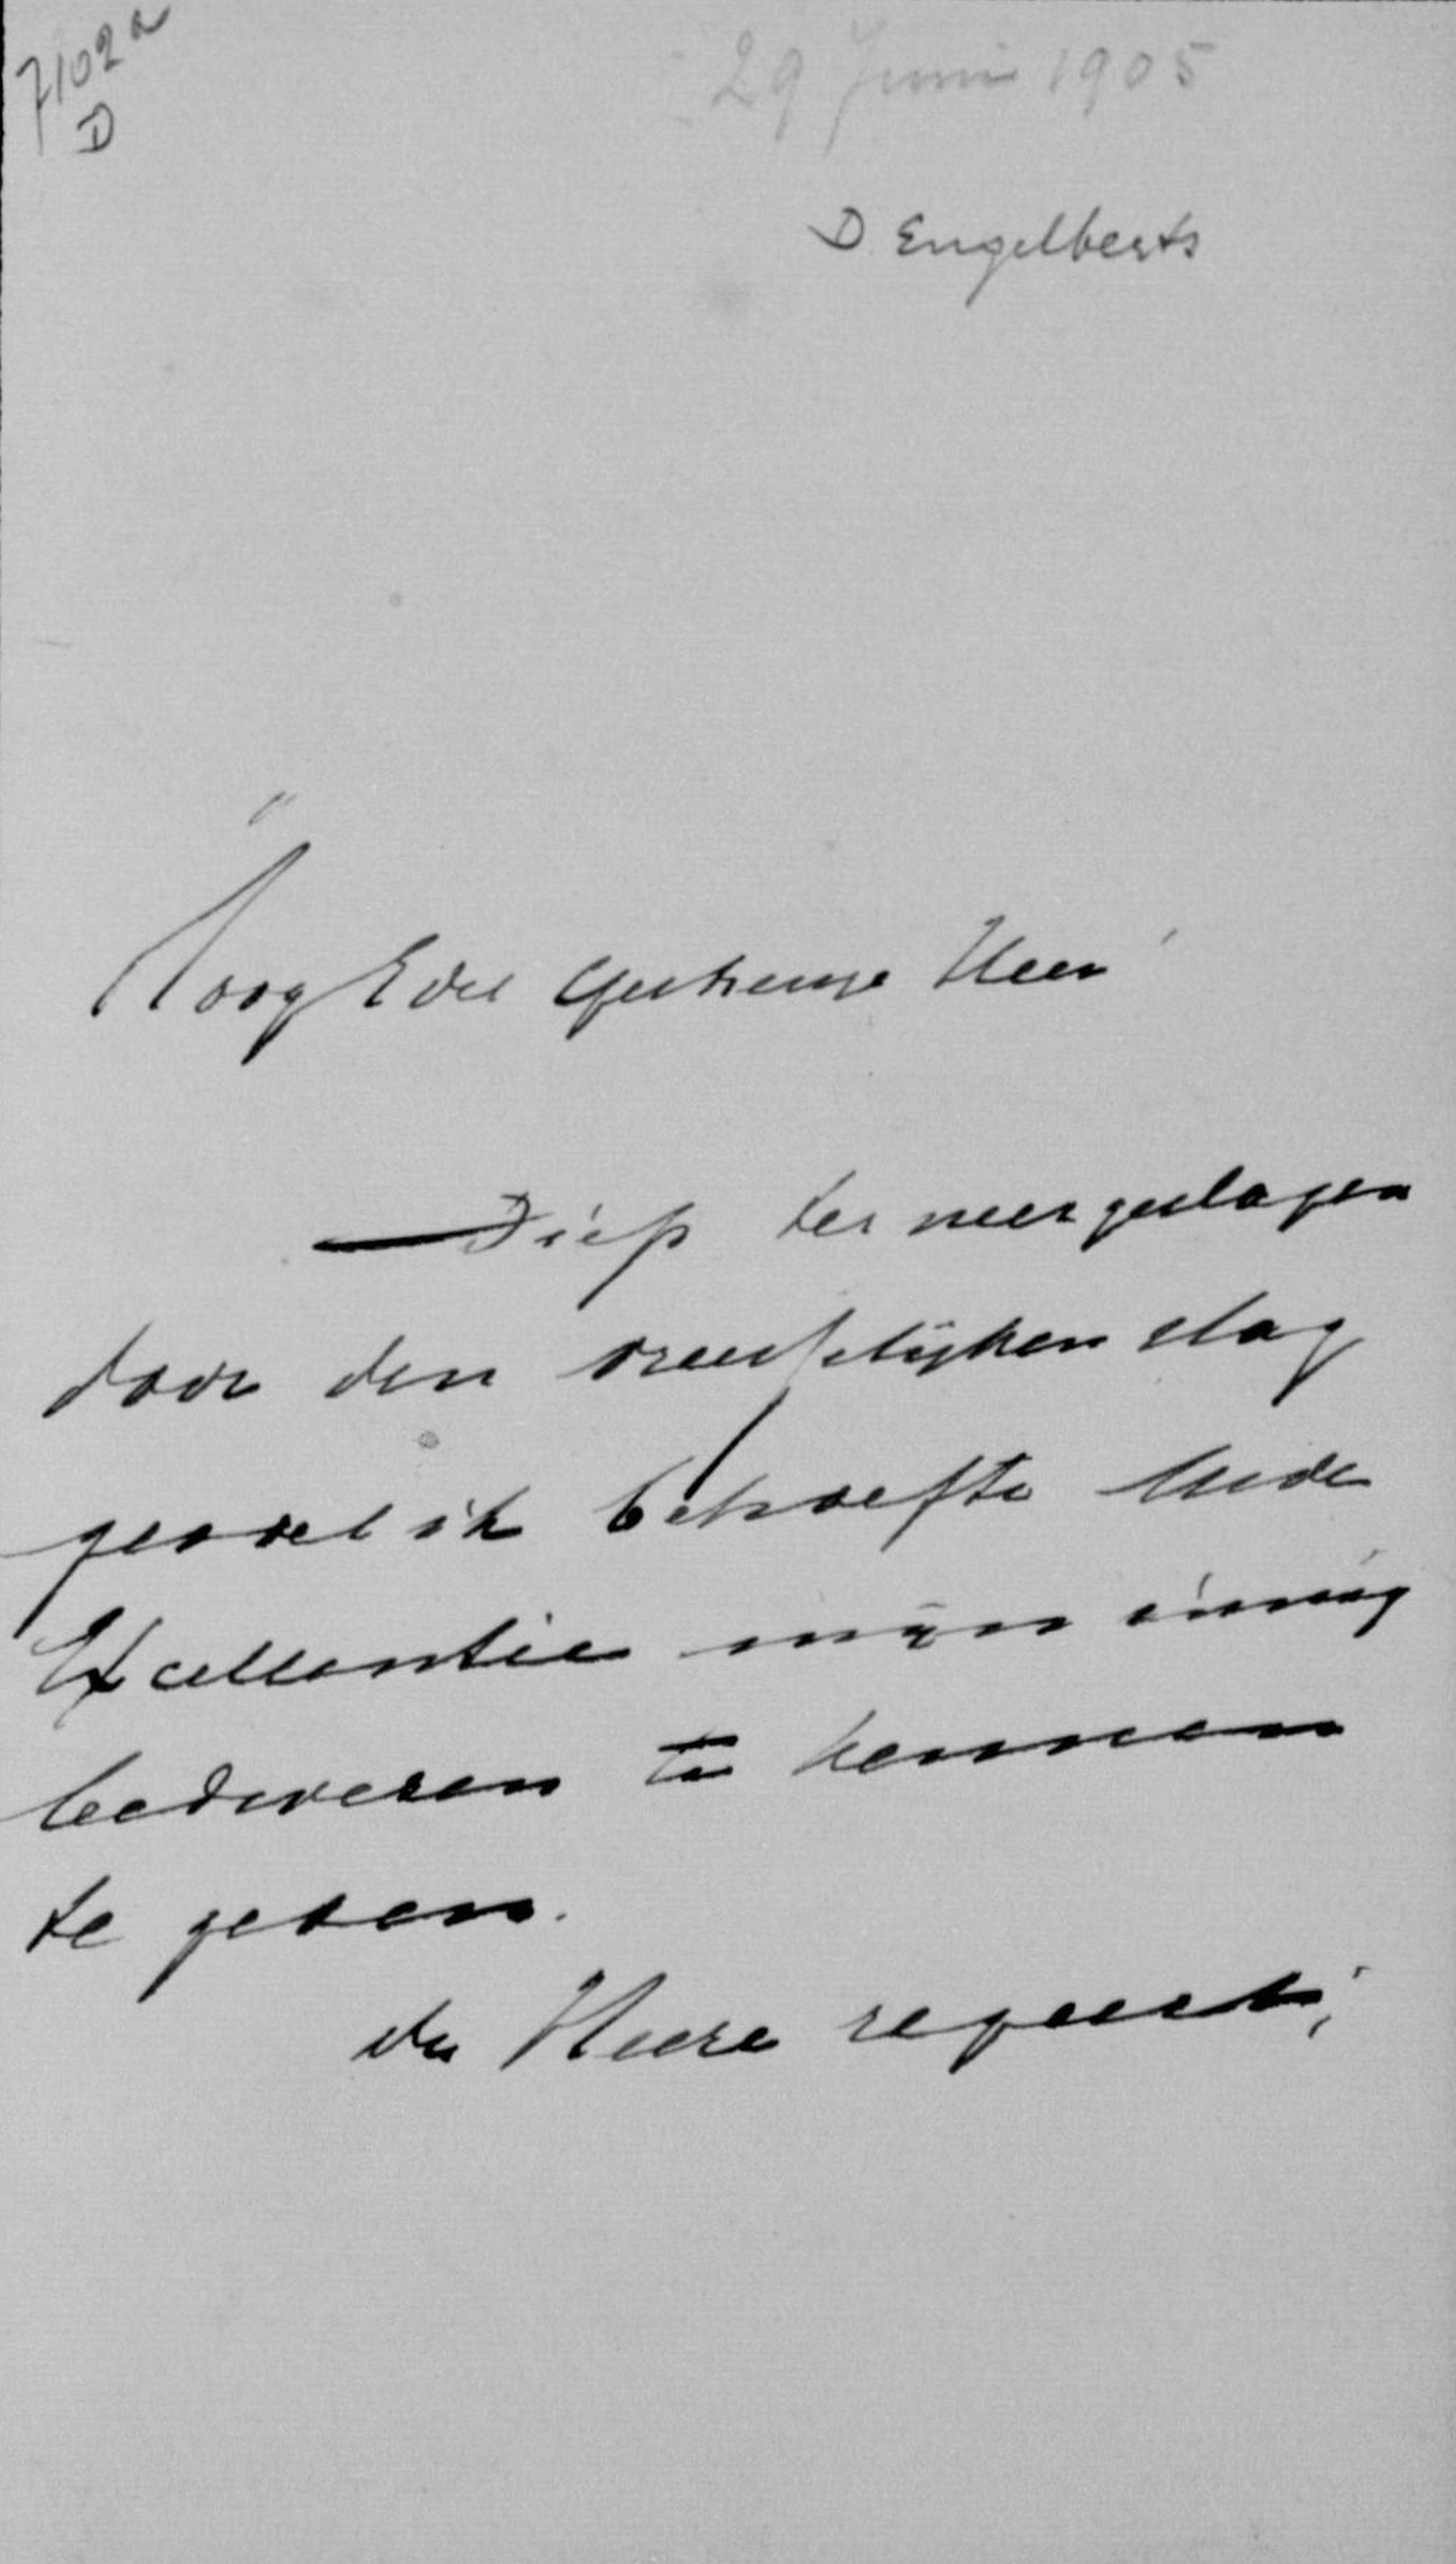 7102a
D
29 Juni 1905
D. Engelberts
Hoog Edel Gestrenge Heer
Diep ter neergeslagen
door den vreeselijken slag
gevoel ik behoefte Uwe
Excellentie mijn innig
leedwezen te kennen
te geven.
de Heere regeert;